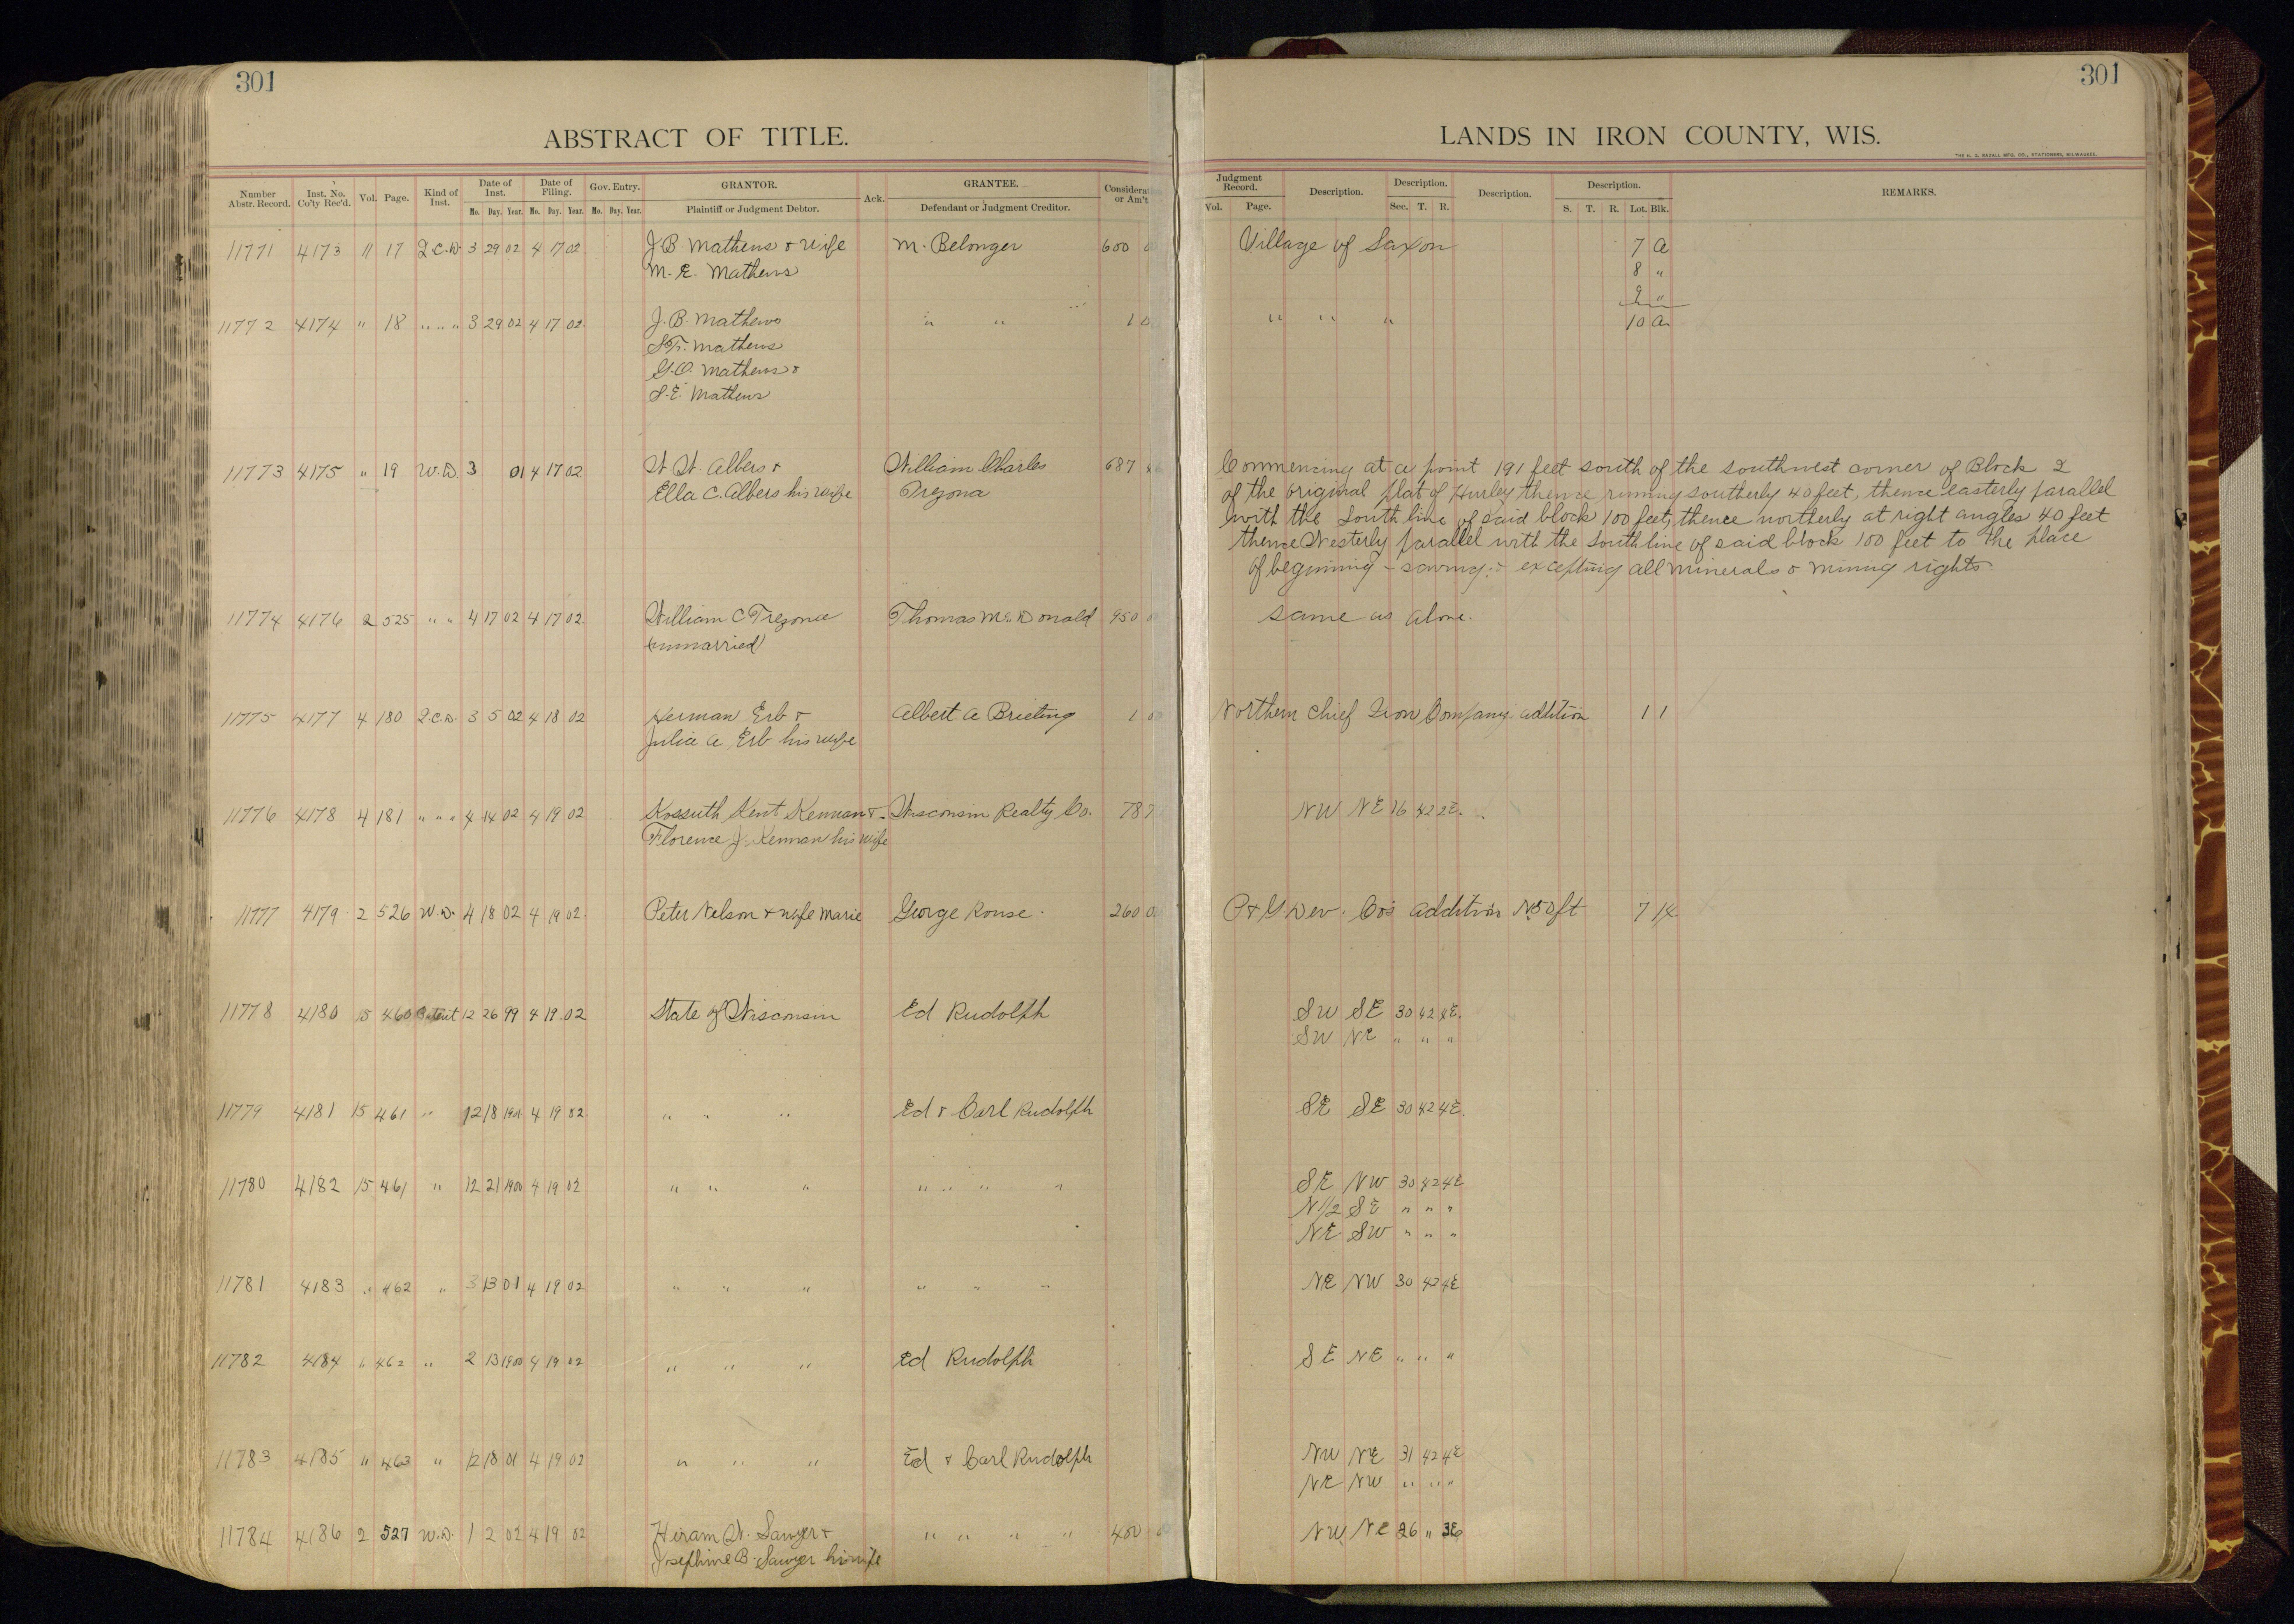 301
301
ABSTRACT OF TITLE.
LANDS IN IRON COUNTY, WIS.
THE H. G. RAZALL MFG. CO., STATIONERS, MILWAUKEE.
Number Abstr. Record. Inst. No. Co'ty Rec'd. Vol. Page. Kind of Inst. Date of Inst. Mo. Day. Year. Date of Filing. Mo. Day. Year. Gov. Entry. Mo. Day. Year. GRANTOR. Plaintiff or Judgment Debtor. Ack. GRANTEE. Defendant or Judgment Creditor. Considerat or Am't
Judgment Record. Vol. Page. Description. Description. Sec. T. R. Description. Description. S. T. R. Lot. Blk. REMARKS.
11771 4173 " 17 Q.C.D. 3 29 02 4 17 02 J. B. Mathews & Wife M. Belonger 600 Village of Saxon 7 A
M. E. Mathews 8 "
9 "
11772 4174 " 18 " " " 3 29 02 4 17 02 J. B. Mathews " " 1 " " " 10 A
Mathews
G. O. Mathews &
S. E. Mathews
11773 4175 " 19 W.D. 3 01 4 17 02 W. W. Albers & William Charles 687 Commencing at a point 191 feet south of the southwest corner of Block 2
Ella C. Albers his wife Trezona of the original plat of Hurley thence running southerly 40 feet, thence easterly parallel
with the South line of said block 100 feet, thence northerly at right angles 40 feet
thence Westerly parallel with the South line of said block 100 feet to the place
of beginning - saving & excepting all minerals & mining rights
11774 4176 2 525 " " 4 17 02 4 17 02 William C Trezona Thomas McDonald 950 same as above.
(unmarried)
11775 4177 4 180 Q.C.D. 3 5 02 4 18 02 Herman Erb & Albert A Brieting 1 Northern Chief Iron Company addition 1 1
Julia A Erb his wife
11776 4178 4 181 " " " 4 14 02 4 19 02 Kossuth Kent Kennan & Wisconsin Realty Co. 78 NW NE 16 42 2E.
Florence J. Kennan his wife
11777 4179 2 526 W.D. 4 18 02 4 19 02 Peter Nelson & wife Marie George Rouse 260 P & G Dev. Co's addition N50ft 7 14
11778 4180 15 460 Patent 12 26 99 4 19 02 State of Wisconsin Ed Rudolph SW SE 30 42 4E.
SW NE " " "
11779 4181 15 461 " 12 18 1901 4 19 02 " " " Ed & Carl Rudolph SE SE 30 42 4E.
11780 4182 15 461 " 12 21 1900 4 19 02 " " " " " " " SE NW 30 42 4E
N 1/2 SE " " "
NE SW " " "
11781 4183 " 462 " 3 13 01 4 19 02 " " " " " " NE NW 30 42 4E
11782 4184 " 462 " 2 13 1900 4 19 02 " " " Ed Rudolph SE NE " " "
11783 4185 " 463 " 12 18 01 4 19 02 " " " Ed & Carl Rudolph NW NE 31 42 4E
NE NW " " "
11784 4186 2 527 W.D. 1 2 02 4 19 02 Hiram W. Sawyer & " " " " 400 NW NE 26 " 3E
Josephine B. Sawyer his wife